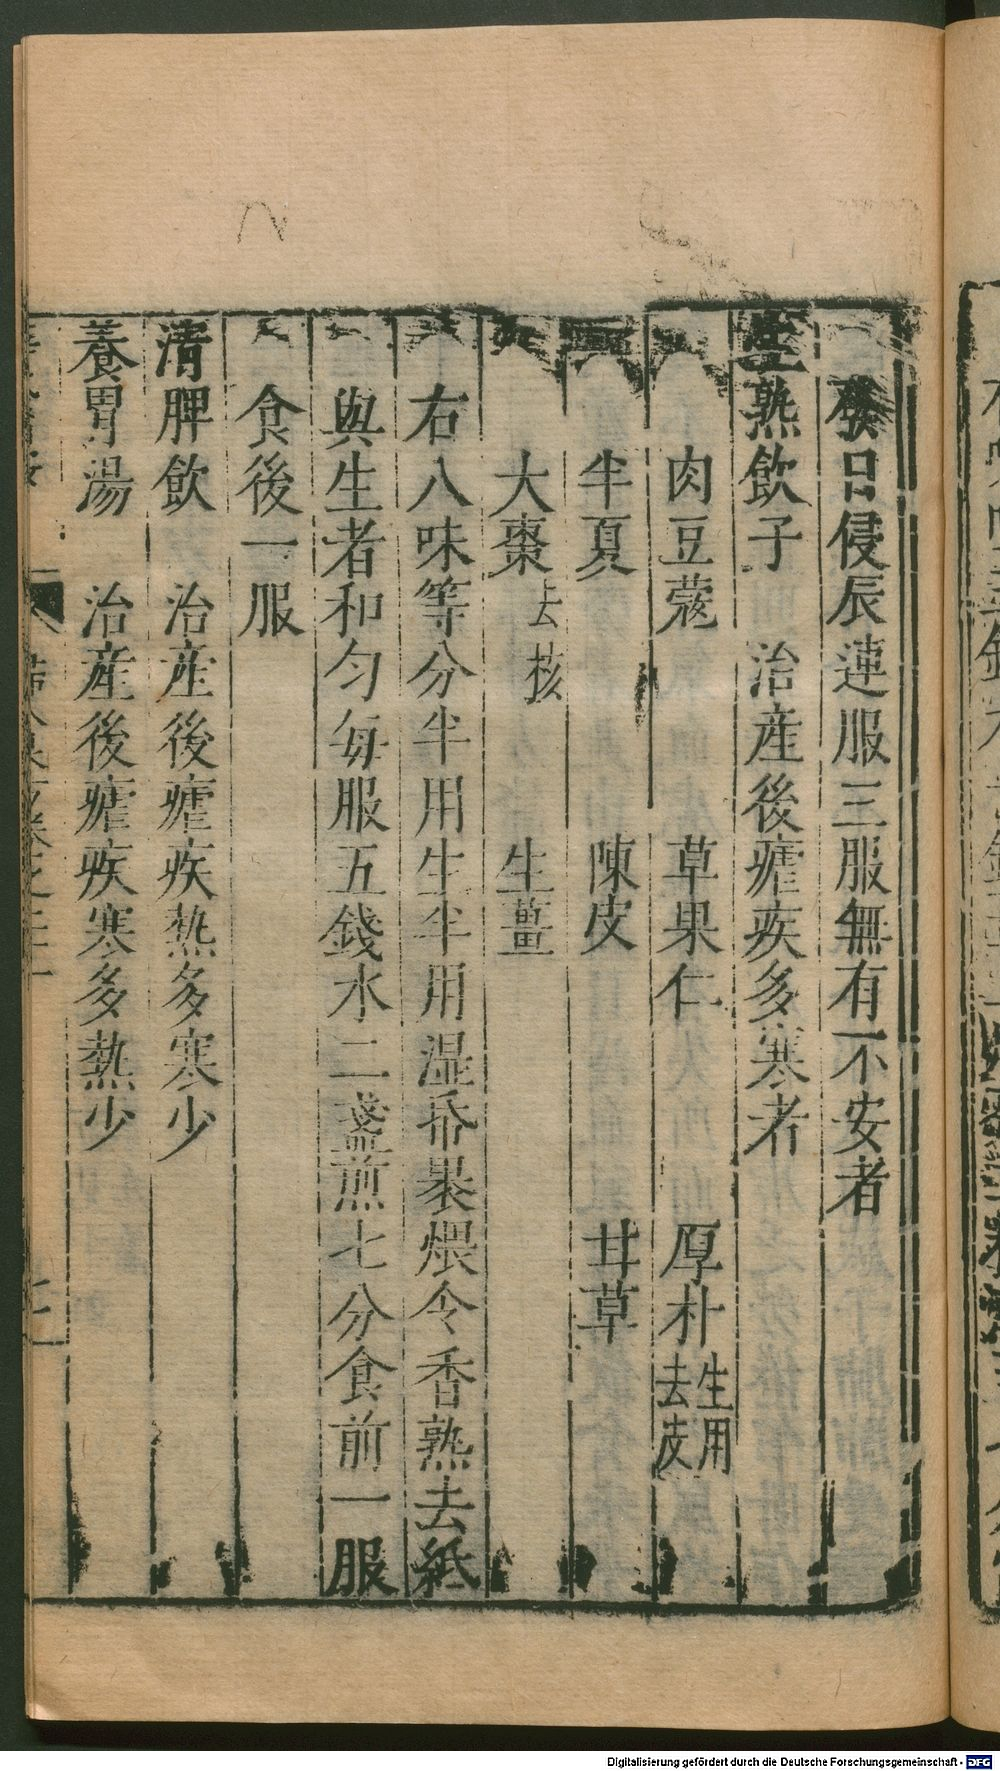 發日侵辰連服三服無有不安者
生熟飲子　治產後瘧疾多寒者
肉豆蔻　草果仁　厚朴生用去皮
半夏　陳皮　甘草
大棗去核　生薑
右八味等分半用生半用湿帋裹煨令香熟去紙
與生者和匀每服五錢水二盞煎七分食前一服
食後一服
清脾飲　治產後瘧疾熱多寒少
養胃湯　治產後瘧疾寒多熱少
Digitalisierung gefördert durch die Deutsche Forschungsgemeinschaft - DFG